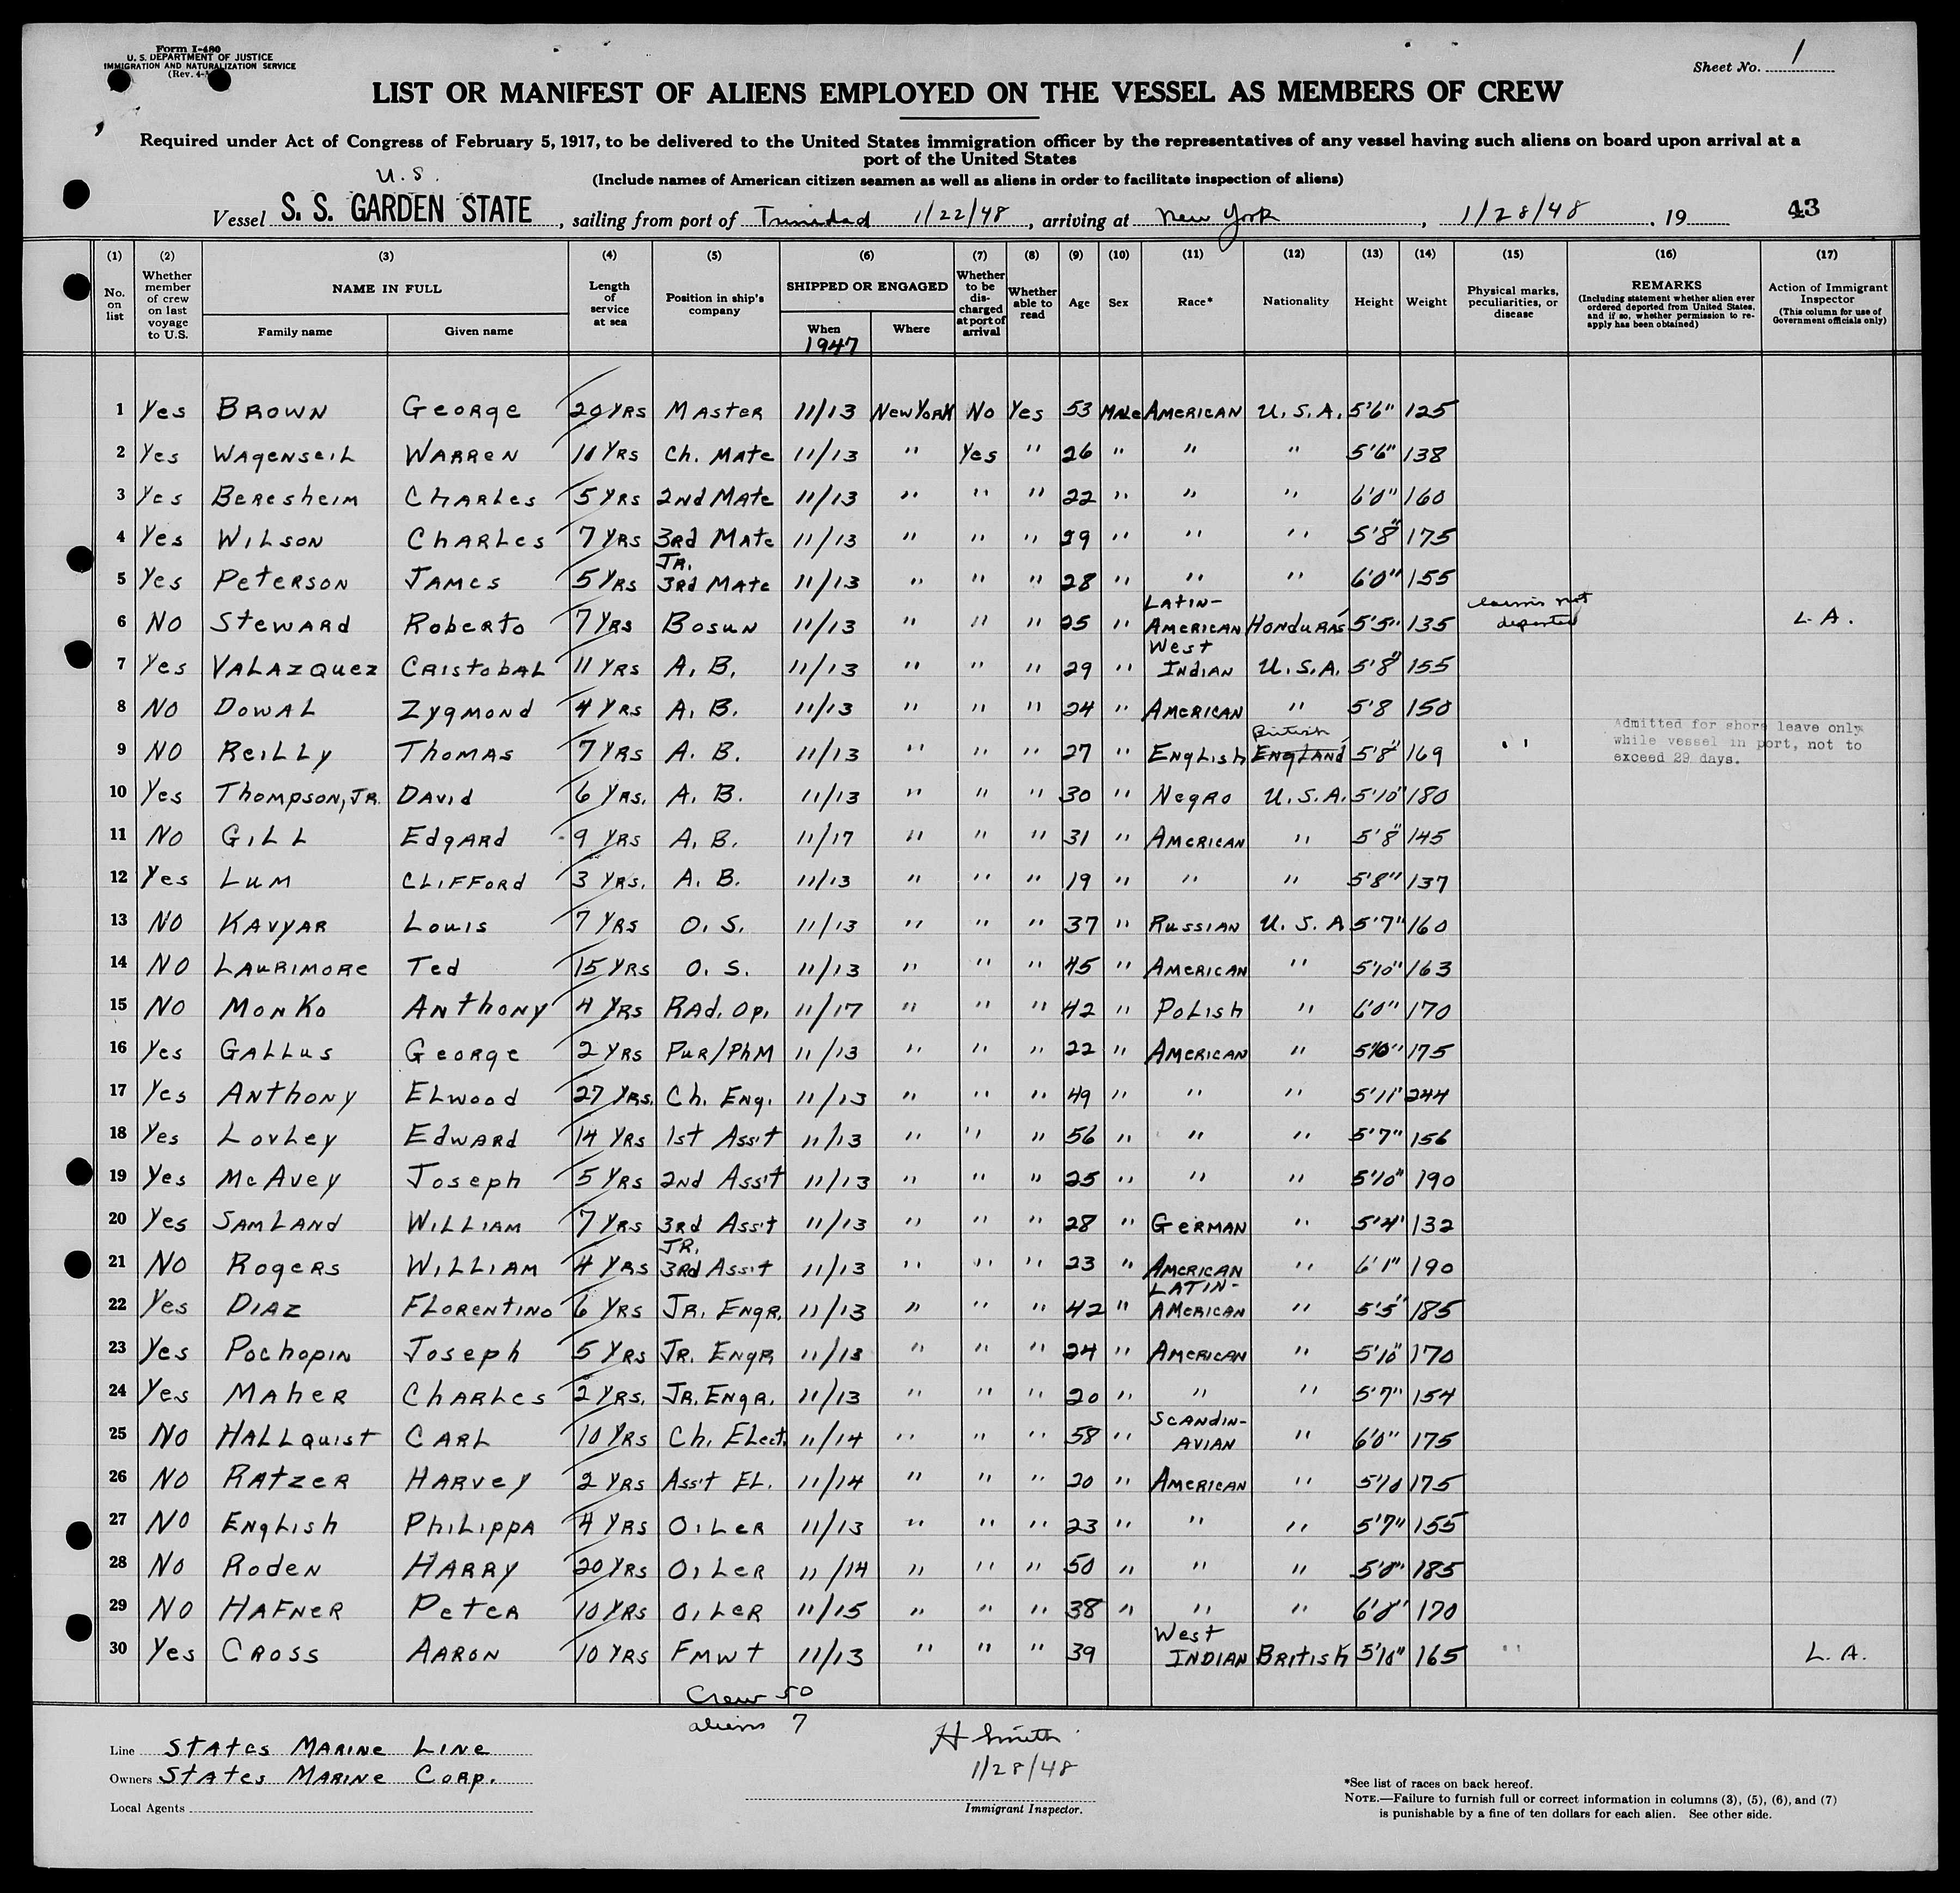 Form I-480
U. S. DEPARTMENT OF JUSTICE
IMMIGRATION AND NATURALIZATION SERVICE
(Rev. 4-
Sheet No. 1
LIST OR MANIFEST OF ALIENS EMPLOYED ON THE VESSEL AS MEMBERS OF CREW
Required under Act of Congress of February 5, 1917, to be delivered to the United States immigration officer by the representatives of any vessel having such aliens on board upon arrival at a
port of the United States
(Include names of American citizen seamen as well as aliens in order to facilitate inspection of aliens)
U.S.
Vessel S. S. GARDEN STATE, sailing from port of Trinidad 1/22/48, arriving at New York, 1/28/48, 19 43
(1) (2) (3) (4) (5) (6) (7) (8) (9) (10) (11) (12) (13) (14) (15) (16) (17)
No. on list
Whether member of crew on last voyage to U.S.
NAME IN FULL
Family name
Given name
Length of service at sea
Position in ship's company
SHIPPED OR ENGAGED
When 1947
Where
Whether to be discharged at port of arrival
Whether able to read
Age
Sex
Race*
Nationality
Height
Weight
Physical marks, peculiarities, or disease
REMARKS
(Including statement whether alien ever ordered deported from United States, and if so, whether permission to re-apply has been obtained)
Action of Immigrant Inspector
(This column for use of Government officials only)
1 Yes BROWN George 20 YRS MASTER 11/13 New York No Yes 53 Male AMERICAN U.S.A. 5'6" 125
2 Yes WAgenseiL WARReN 11 YRS Ch. Mate 11/13 " Yes " 26 " " " 5'6" 138
3 Yes Beresheim ChARLes 5 YRS 2nd Mate 11/13 " " " 22 " " " 6'0" 160
4 Yes WiLson ChARLes 7 YRS 3rd Mate 11/13 " " " 29 " " " 5'8" 175
5 Yes Peterson JAMes 5 YRS JR. 3rd Mate 11/13 " " " 28 " " " 6'0" 155
6 No StewARd Roberto 7 YRS Bosun 11/13 " " " 25 " LAtin-AmericAN HonduRAS 5'5" 135 claims not deported L.A.
7 Yes VALAzquez CRistobAL 11 YRS A.B. 11/13 " " " 29 " West IndiAN U.S.A. 5'8" 155
8 No DowAL Zygmond 4 YRS A.B. 11/13 " " " 24 " AMeRicAN " 5'8 150
9 No ReiLLy ThomAS 7 YRS A.B. 11/13 " " " 27 " EngLish British EngLANd 5'8" 169 " Admitted for shore leave only while vessel in port, not to exceed 29 days.
10 Yes Thompson, JR. DAvid 6 YRS. A.B. 11/13 " " " 30 " Negro U.S.A. 5'10" 180
11 No GiLL EdgARd 9 YRS A.B. 11/17 " " " 31 " AMeRicAN " 5'8" 145
12 Yes Lum CLiFFord 3 YRS. A.B. 11/13 " " " 19 " " " 5'8" 137
13 No KAvyAR Louis 7 YRS O.S. 11/13 " " " 37 " RussiAN U.S.A 5'7" 160
14 No LAuRimoRe Ted 15 YRS O.S. 11/13 " " " 45 " AMeRicAN " 5'10" 163
15 No MonKo ANthony 4 YRS RAd. Op. 11/17 " " " 42 " PoLish " 6'0" 170
16 Yes GALLus George 2 YRS PuR/PhM 11/13 " " " 22 " AMeRicAN " 5'10" 175
17 Yes ANthony ELwood 27 YRS. Ch. Eng. 11/13 " " " 49 " " " 5'11" 244
18 Yes LovLey EdwARd 14 YRS 1st Ass't 11/13 " " " 56 " " " 5'7" 156
19 Yes McAvey Joseph 5 YRS 2nd Ass't 11/13 " " " 25 " " " 5'10" 190
20 Yes SAmLANd WiLLiAM 7 YRS 3rd Ass't 11/13 " " " 28 " GeRMAN " 5'4" 132
21 No RogeRs WiLLiAM 4 YRS JR. 3Rd Ass't 11/13 " " " 23 " AMeRicAN " 6'1" 190
22 Yes DiAz FLorentino 6 YRS JR. EngR. 11/13 " " " 42 " LATiN-AMeRicAN " 5'5" 185
23 Yes Pochopin Joseph 5 YRS JR. EngR 11/13 " " " 24 " AMeRicAN " 5'10" 170
24 Yes MAheR ChARLes 2 YRS. JR. EngR. 11/13 " " " 20 " " " 5'7" 154
25 No HALLquist CARL 10 YRS Ch. ELect. 11/14 " " " 58 " ScANdiN-AviAN " 6'0" 175
26 No RAtzeR HARvey 2 YRS Ass't EL. 11/14 " " " 20 " AMeRicAN " 5'10 175
27 No EngLish PhiLippA 4 YRS OiLeR 11/13 " " " 23 " " " 5'7" 155
28 No Roden HARRy 20 YRS OiLeR 11/14 " " " 50 " " " 5'8" 185
29 No HAFNeR PeteR 10 YRS OiLeR 11/15 " " " 38 " " " 6'0" 170
30 Yes CRoss AARoN 10 YRS FMWT 11/13 " " " 39 West INdiAN British 5'10" 165 " L.A.
Crew 50
aliens 7
Line StAtes MARine Line
Owners StAtes MARine Corp.
Local Agents
H Smith
1/28/48
Immigrant Inspector.
*See list of races on back hereof.
NOTE.—Failure to furnish full or correct information in columns (3), (5), (6), and (7)
is punishable by a fine of ten dollars for each alien. See other side.